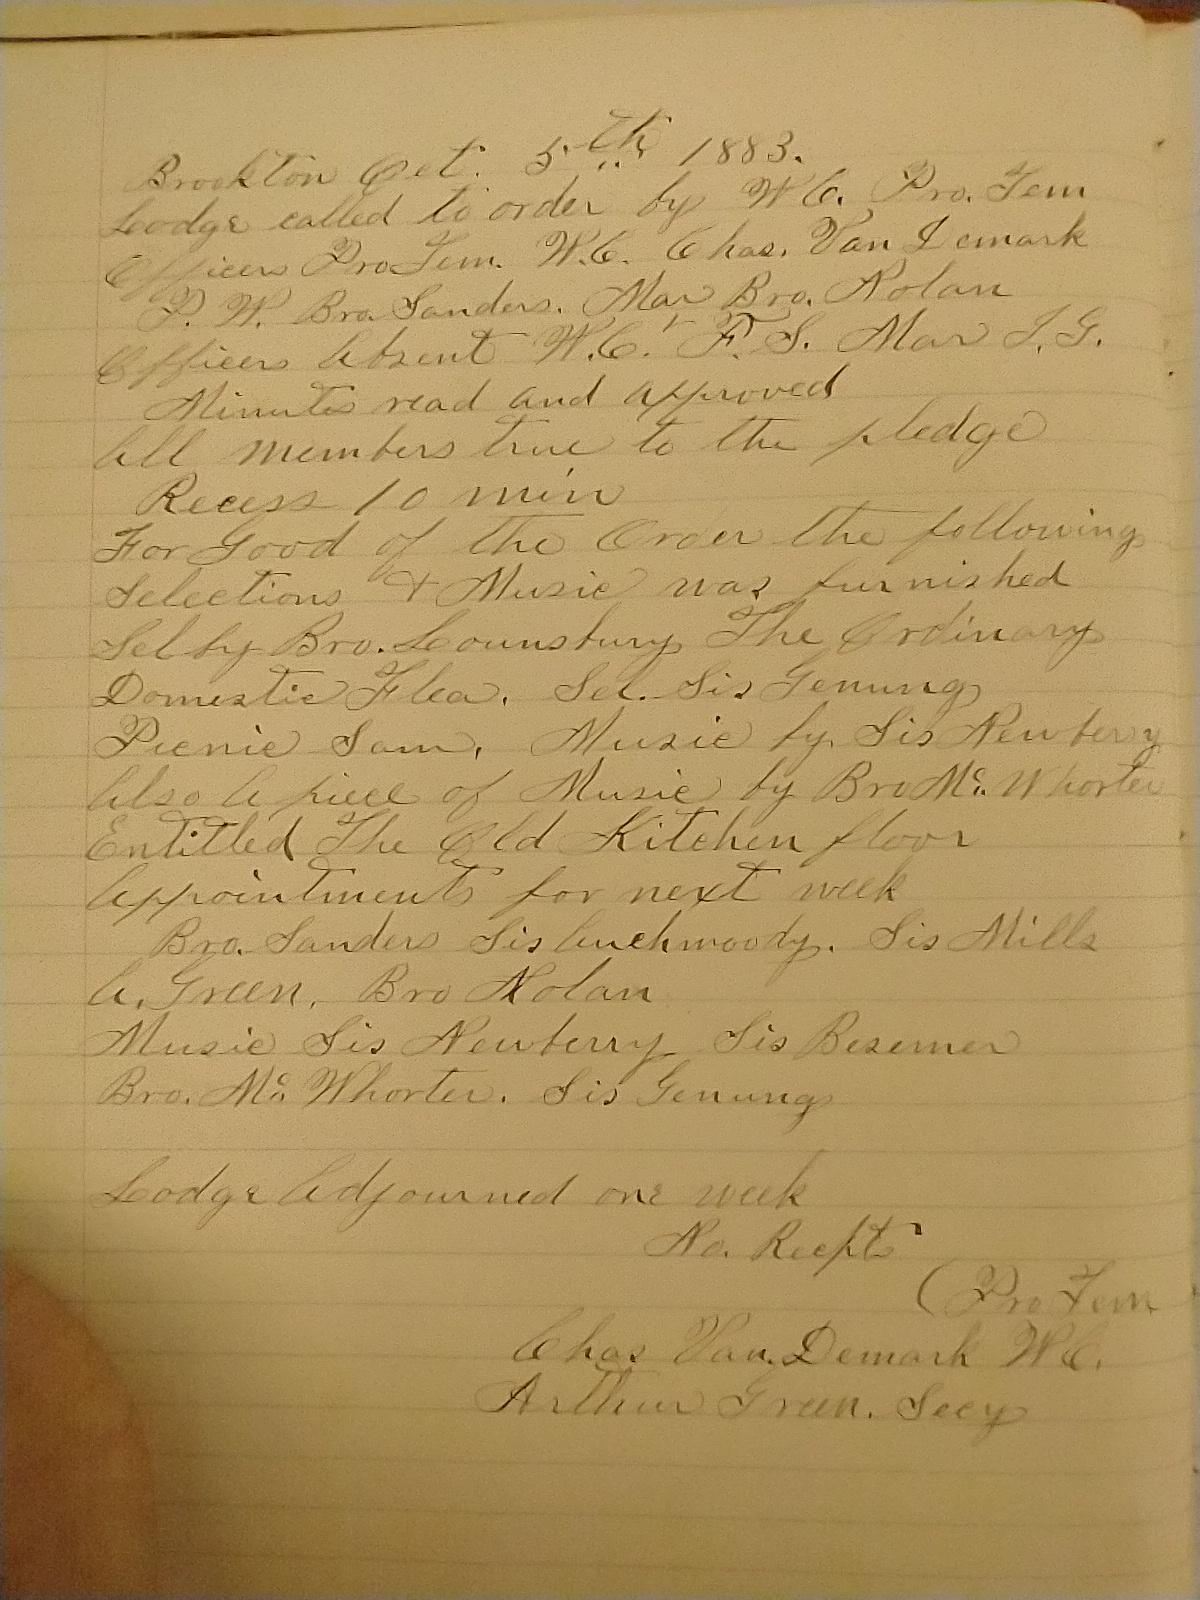 Brookton Oct. 5th 1883.
Lodge called to order by W.C. Pro. Tem
Officers Pro Tem. W.C. Chas. Van Demark
P. W. Bro. Sanders. Mar Bro. Nolan
Officers Absent W.C. F. S. Mar I. G.
Minutes read and approved
All members true to the pledge
Recess 10 min
For Good of the Order the following
Selections & Music was furnished
Sel by Bro. Lounsbury The Ordinary
Domestic Flea. Sel. Sis Genung
Picnic Sam. Music by Sis Newbery
Also A piece of Music by Bro Mc. Whorter
Entitled The Old Kitchen floor
Appointments for next week
Bro. Sanders Sis Auchmoody. Sis Mills
A. Green. Bro Nolan
Music Sis Newberry Sis Besemer
Bro. Mc Whorter. Sis Genung
Lodge Adjourned one week
No. Recpt
(Pro Tem
Chas Van Demark W.C.
Arthur Green. Secy